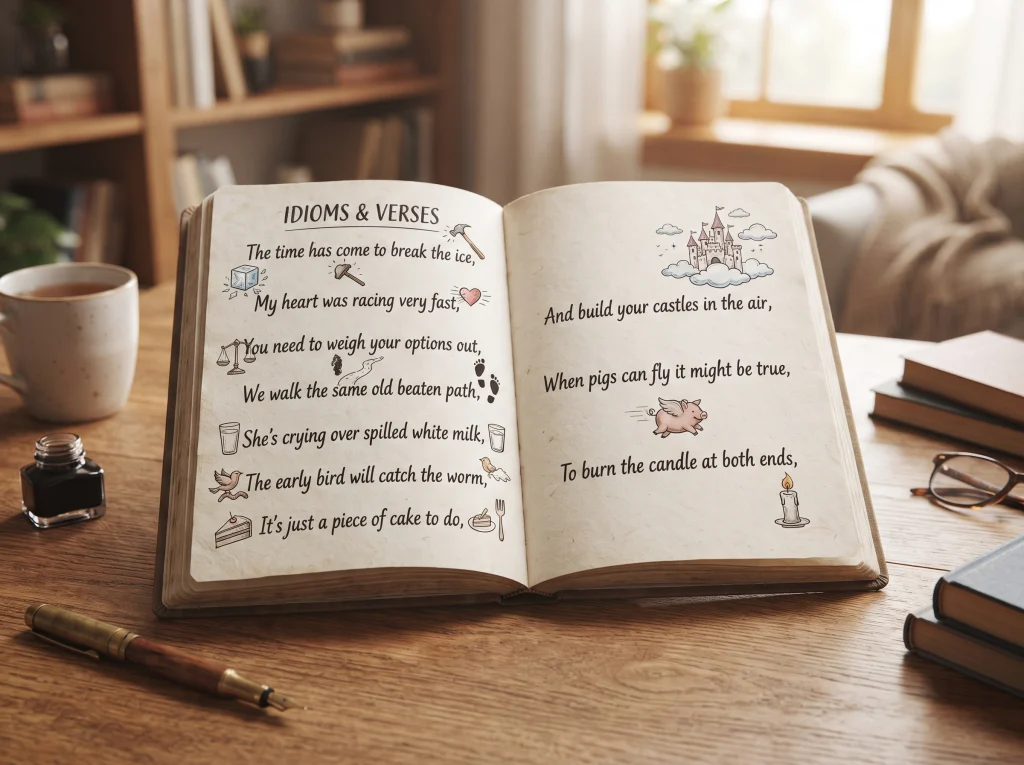 IDIOMS & VERSES
The time has come to break the ice,
My heart was racing very fast,
You need to weigh your options out,
We walk the same old beaten path,
She's crying over spilled white milk,
The early bird will catch the worm,
It's just a piece of cake to do,
And build your castles in the air,
When pigs can fly it might be true,
To burn the candle at both ends,